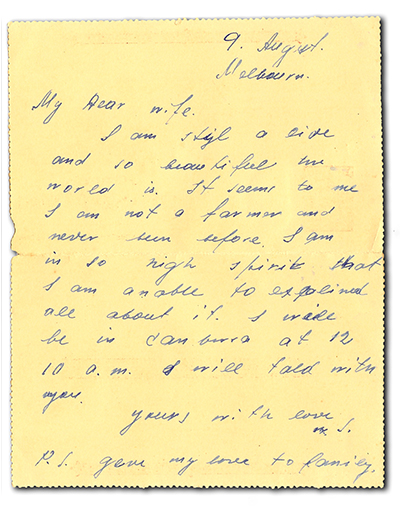 9. August.
Melbourn.
My Dear wife.
I am stiyl a live
and so beautiful the
world is. It seems to me
I am not a farmer and
never been before. I am
in so high spirit that
I am anable to explined
all about it. I will
be in Canbura at 12
10 a.m. I will told with
you.
yours with love
S.
P.S. geve my love to family.